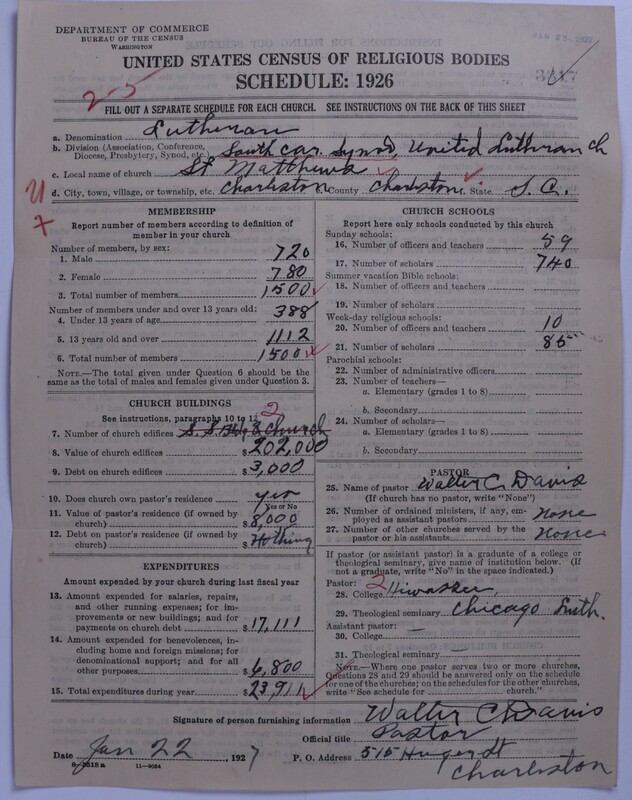 DEPARTMENT OF COMMERCE
BUREAU OF THE CENSUS
WASHINGTON
JAN 25 1927
UNITED STATES CENSUS OF RELIGIOUS BODIES
SCHEDULE: 1926
2-5
FILL OUT A SEPARATE SCHEDULE FOR EACH CHURCH. SEE INSTRUCTIONS ON THE BACK OF THIS SHEET
a. Denomination Lutheran
b. Division (Association, Conference, Diocese, Presbytery, Synod, etc.) South Car. Synod, United Luthran Ch
c. Local name of church St Matthews
d. City, town, village, or township, etc. Charleston County Charleston State S.C.
MEMBERSHIP
Report number of members according to definition of member in your church
Number of members, by sex:
1. Male 720
2. Female 780
3. Total number of members 1500
Number of members under and over 13 years old:
4. Under 13 years of age 388
5. 13 years old and over 1112
6. Total number of members 1500
NOTE.—The total given under Question 6 should be same as the total of males and females given under Question 3.
CHURCH BUILDINGS
See instructions, paragraphs 10 to 12
2
7. Number of church edifices S.S. Bldg & Church
8. Value of church edifices $202,000
9. Debt on church edifices $3,000
10. Does church own pastor's residence yes
Yes or No
11. Value of pastor's residence (if owned by church) $8,000
12. Debt on pastor's residence (if owned by church) $Nothing
EXPENDITURES
Amount expended by your church during last fiscal year
13. Amount expended for salaries, repairs, and other running expenses; for improvements or new buildings; and for payments on church debt $17,111
14. Amount expended for benevolences, including home and foreign missions; for denominational support; and for all other purposes $6,800
15. Total expenditures during year $23,911
CHURCH SCHOOLS
Report here only schools conducted by this church
Sunday schools:
16. Number of officers and teachers 59
17. Number of scholars 740
Summer vacation Bible schools:
18. Number of officers and teachers
19. Number of scholars
Week-day religious schools:
20. Number of officers and teachers 10
21. Number of scholars 85
Parochial schools:
22. Number of administrative officers
23. Number of teachers—
a. Elementary (grades 1 to 8)
b. Secondary
24. Number of scholars—
a. Elementary (grades 1 to 8)
b. Secondary
PASTOR
25. Name of pastor Walter C. Davis
(If church has no pastor, write "None")
26. Number of ordained ministers, if any, employed as assistant pastors None
27. Number of other churches served by the pastor or his assistants None
If pastor (or assistant pastor) is a graduate of a college or theological seminary, give name of institution below. (If not a graduate, write "No" in the space indicated.)
Pastor: 2
28. College Hiwassee,
29. Theological seminary Chicago Luth.
Assistant pastor:
30. College —
31. Theological seminary —
NOTE.—Where one pastor serves two or more churches, Questions 28 and 29 should be answered only on the schedule for one of the churches; on the schedules for the other churches, write "See schedule for church."
Signature of person furnishing information Walter C Davis
Official title Pastor
Date Jan 22, 1927
P. O. Address 515 Huger St
Charleston
8-2518 a 11-9024